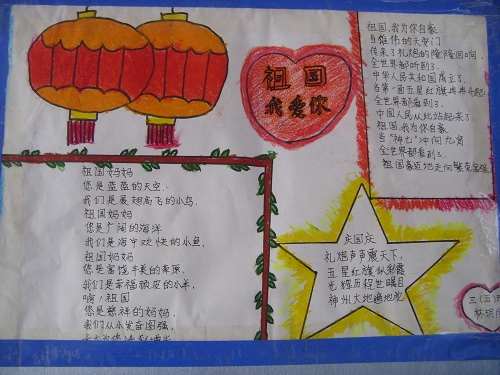 祖国
我爱你
祖国,我为你自豪
当雄伟的天安门
传来了礼炮的隆隆回响
全世界都听到了
中华人民共和国成立了
当第一面五星红旗冉冉升起
全世界都看到了
中国人民从此站起来了
祖国,我为你自豪
当"神七"冲向九霄
全世界都看到
祖国
祖国妈妈
您是蓝蓝的天空,
我们是展翅高飞的小鸟,
祖国妈妈
您是广阔的海洋
我们是海中欢快的小鱼,
祖国妈妈
您是富饶丰美的草原,
我们是幸福成长的小羊,
啊,祖国
您是慈祥的妈妈,
我们从小发奋图强,
庆国庆
礼炮声声震天下,
五星红旗
光辉历程世瞩目
神州大地遍地花
三(五